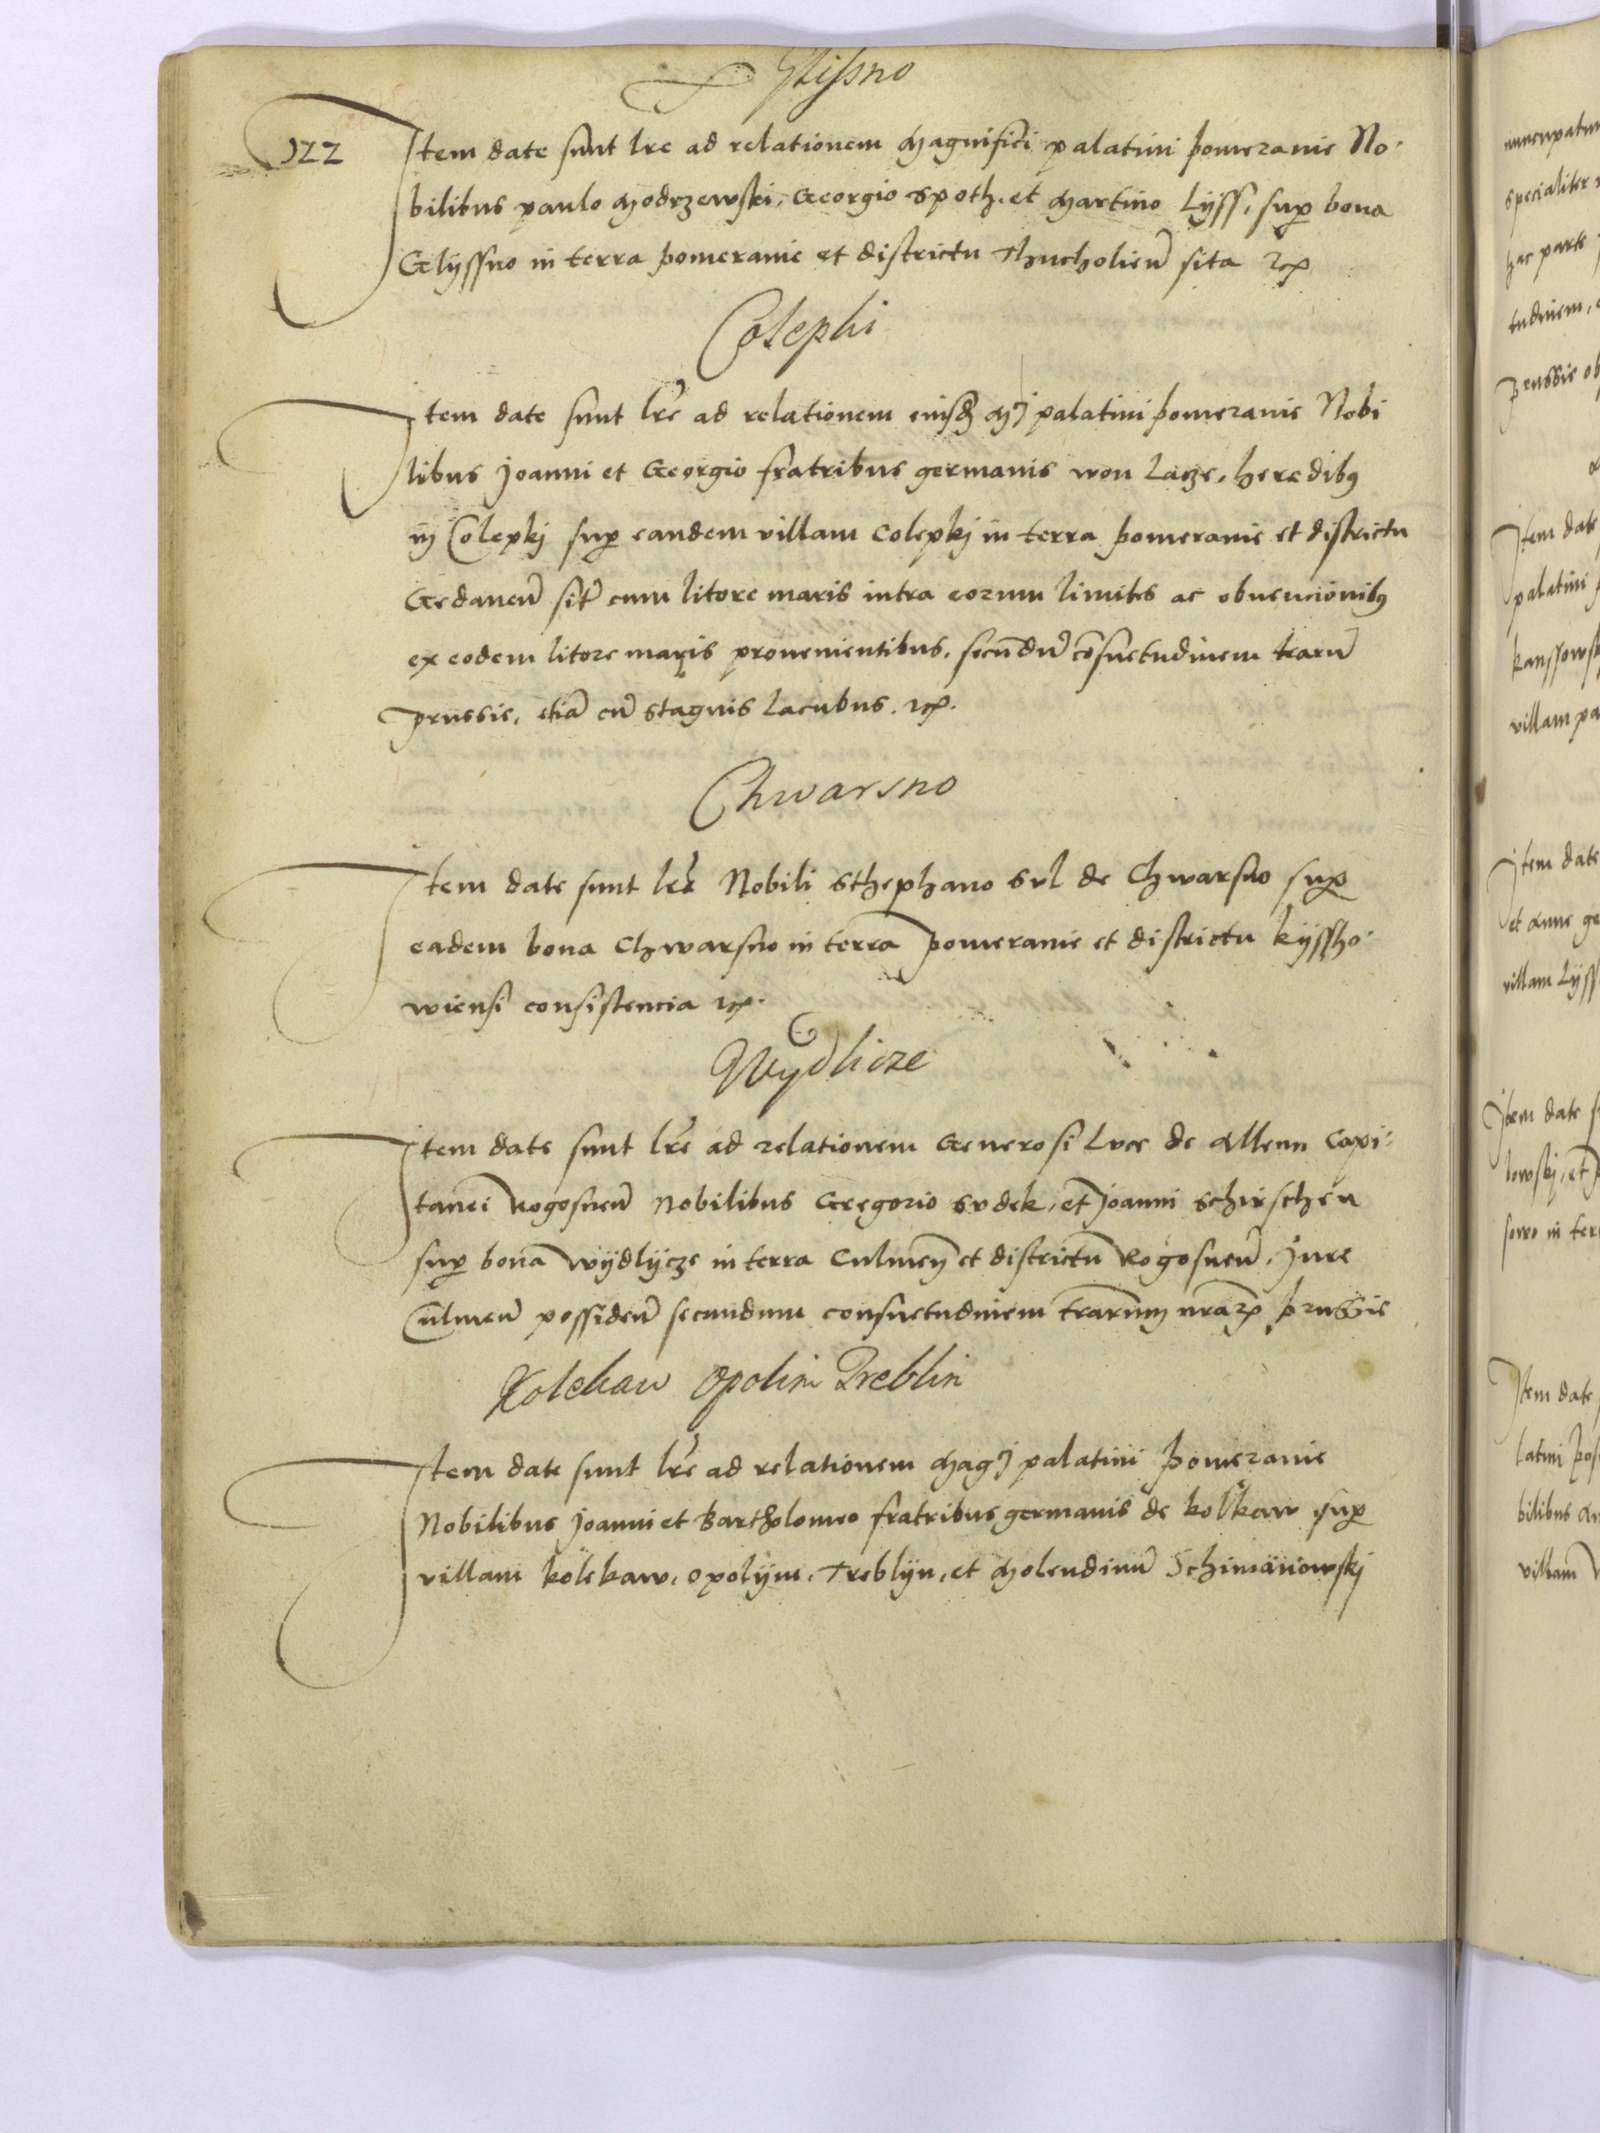 Glisno
122 Item date sunt lre ad relationem Magnifici palatini pomeranie No-
bilibus paulo Modrzewski, Georgio Spoth, et Martino Lyss, sup bona
Glyssno in terra pomeranie et districtu Thucholien sita
Colepki
Item date sunt lre ad relationem eiusd Mci palatini pomeranie Nobi
libus Joanni et Georgio fratribus germanis won Lacze, heredibus
in Colepkj sup eandem villam Colepkj in terra pomeranie et districtu
Gedanen sit cum litore maris intra eorum limites ac obuencionibus
ex eodem litore maris prouenientibus, secundu consuetudinem trarum
prussie, etia cu stagnis lacubus. etc.
Chwarsno
Item date sunt lre Nobili Sthephano Sul de Chwarsno sup
eadem bona Chwarsno in terra pomeranie et districtu kyssho-
wiensi consistencia etc.
Wydlicze
Item date sunt lre ad relationem Generosi Luce de Allenn Capi-
tanei Rogosnen Nobilibus Gregorio Sudek, et Joanni Schirschen
sup bona Wydlycze in terra Culmen et districtu Rogosnen, Jure
Culmen possiden secundum consuetudinem trarum nrarum prussie
Kolekaw Opolin Treblin
Item date sunt lre ad relationem Magci palatini pomeranie
Nobilibus Joanni et Bartholomeo fratribus germanis de kolkaw sup
villam kolekaw, Opolym, Treblyn, et Molendinu Schimanowskj
Item date
palatini
villam
Item date
villam Lyss
Item date
Item date
bilibus
villam